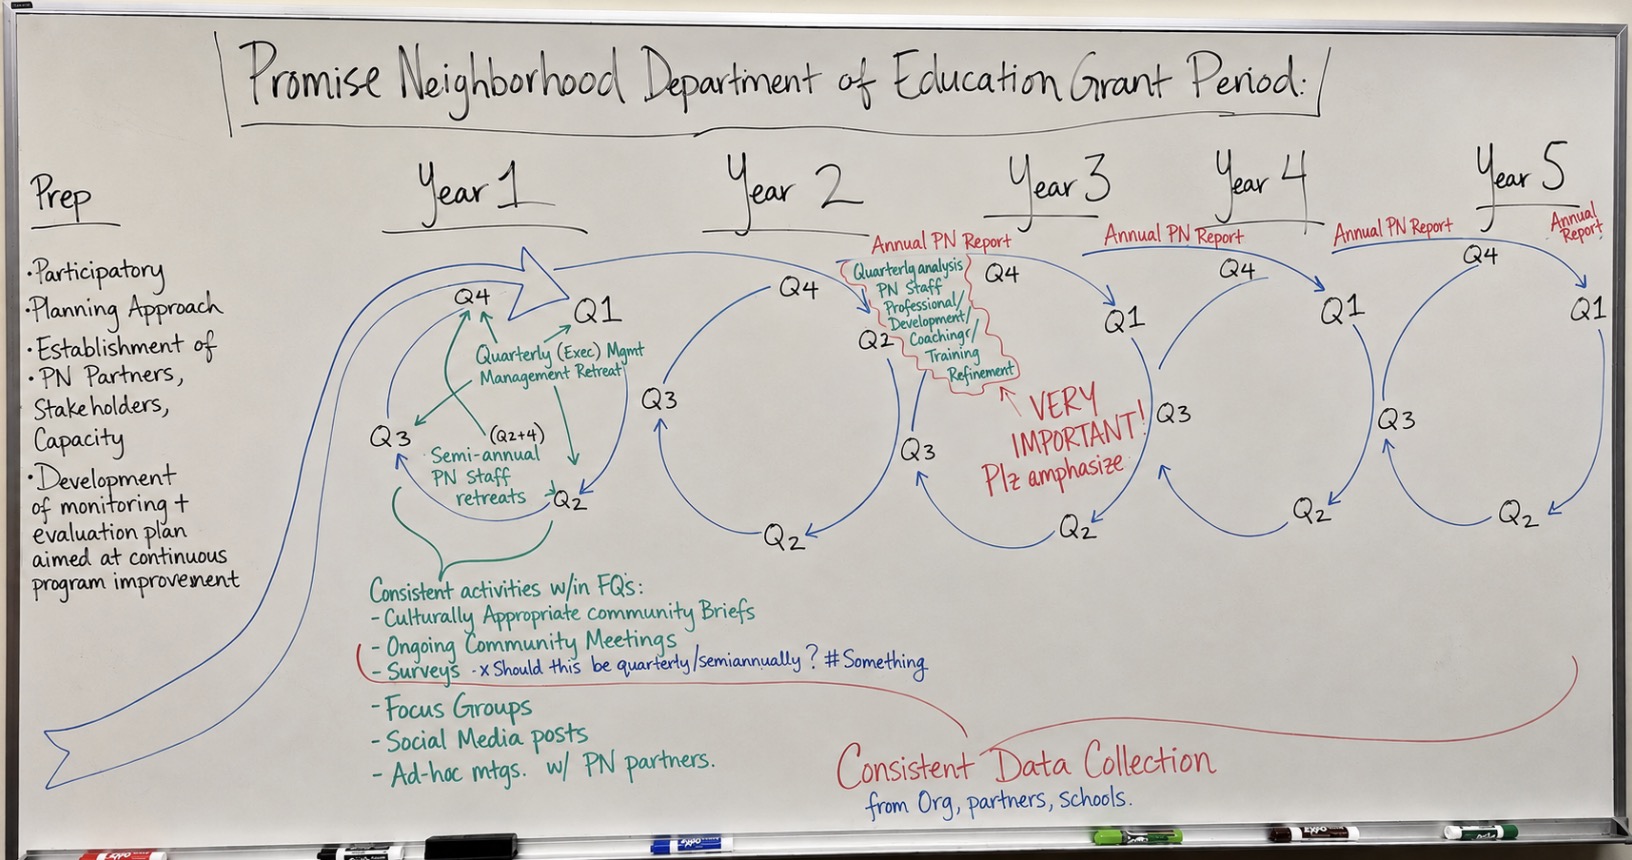 Promise Neighborhood Department of Education Grant Period:
Prep
·Participatory
·Planning Approach
·Establishment of
·PN Partners,
Stakeholders,
Capacity
·Development
of monitoring +
evaluation plan
aimed at continuous
program improvement
Year 1
Q4
Q1
Quarterly (Exec) Mgmt
Management Retreat
Q3
(Q2+4)
Semi-annual
PN Staff
retreats
Q2
Consistent activities w/in FQ's:
- Culturally Appropriate community Briefs
- Ongoing Community Meetings
- Surveys -x Should this be quarterly/semiannually? #Something
- Focus Groups
- Social Media posts
- Ad-hoc mtgs. w/ PN partners.
Year 2
Q4
Q2
Q3
Q2
Annual PN Report
Quarterly analysis
PN Staff
Professional/
Development/
Coaching/
Training
Refinement
VERY
IMPORTANT!
Plz amphasize
Year 3
Q4
Q1
Q3
Q2
Annual PN Report
Year 4
Q4
Q1
Q3
Q2
Annual PN Report
Year 5
Q4
Q1
Q3
Q2
Annual
Report
Consistent Data Collection
from Org, partners, schools.
EXPO